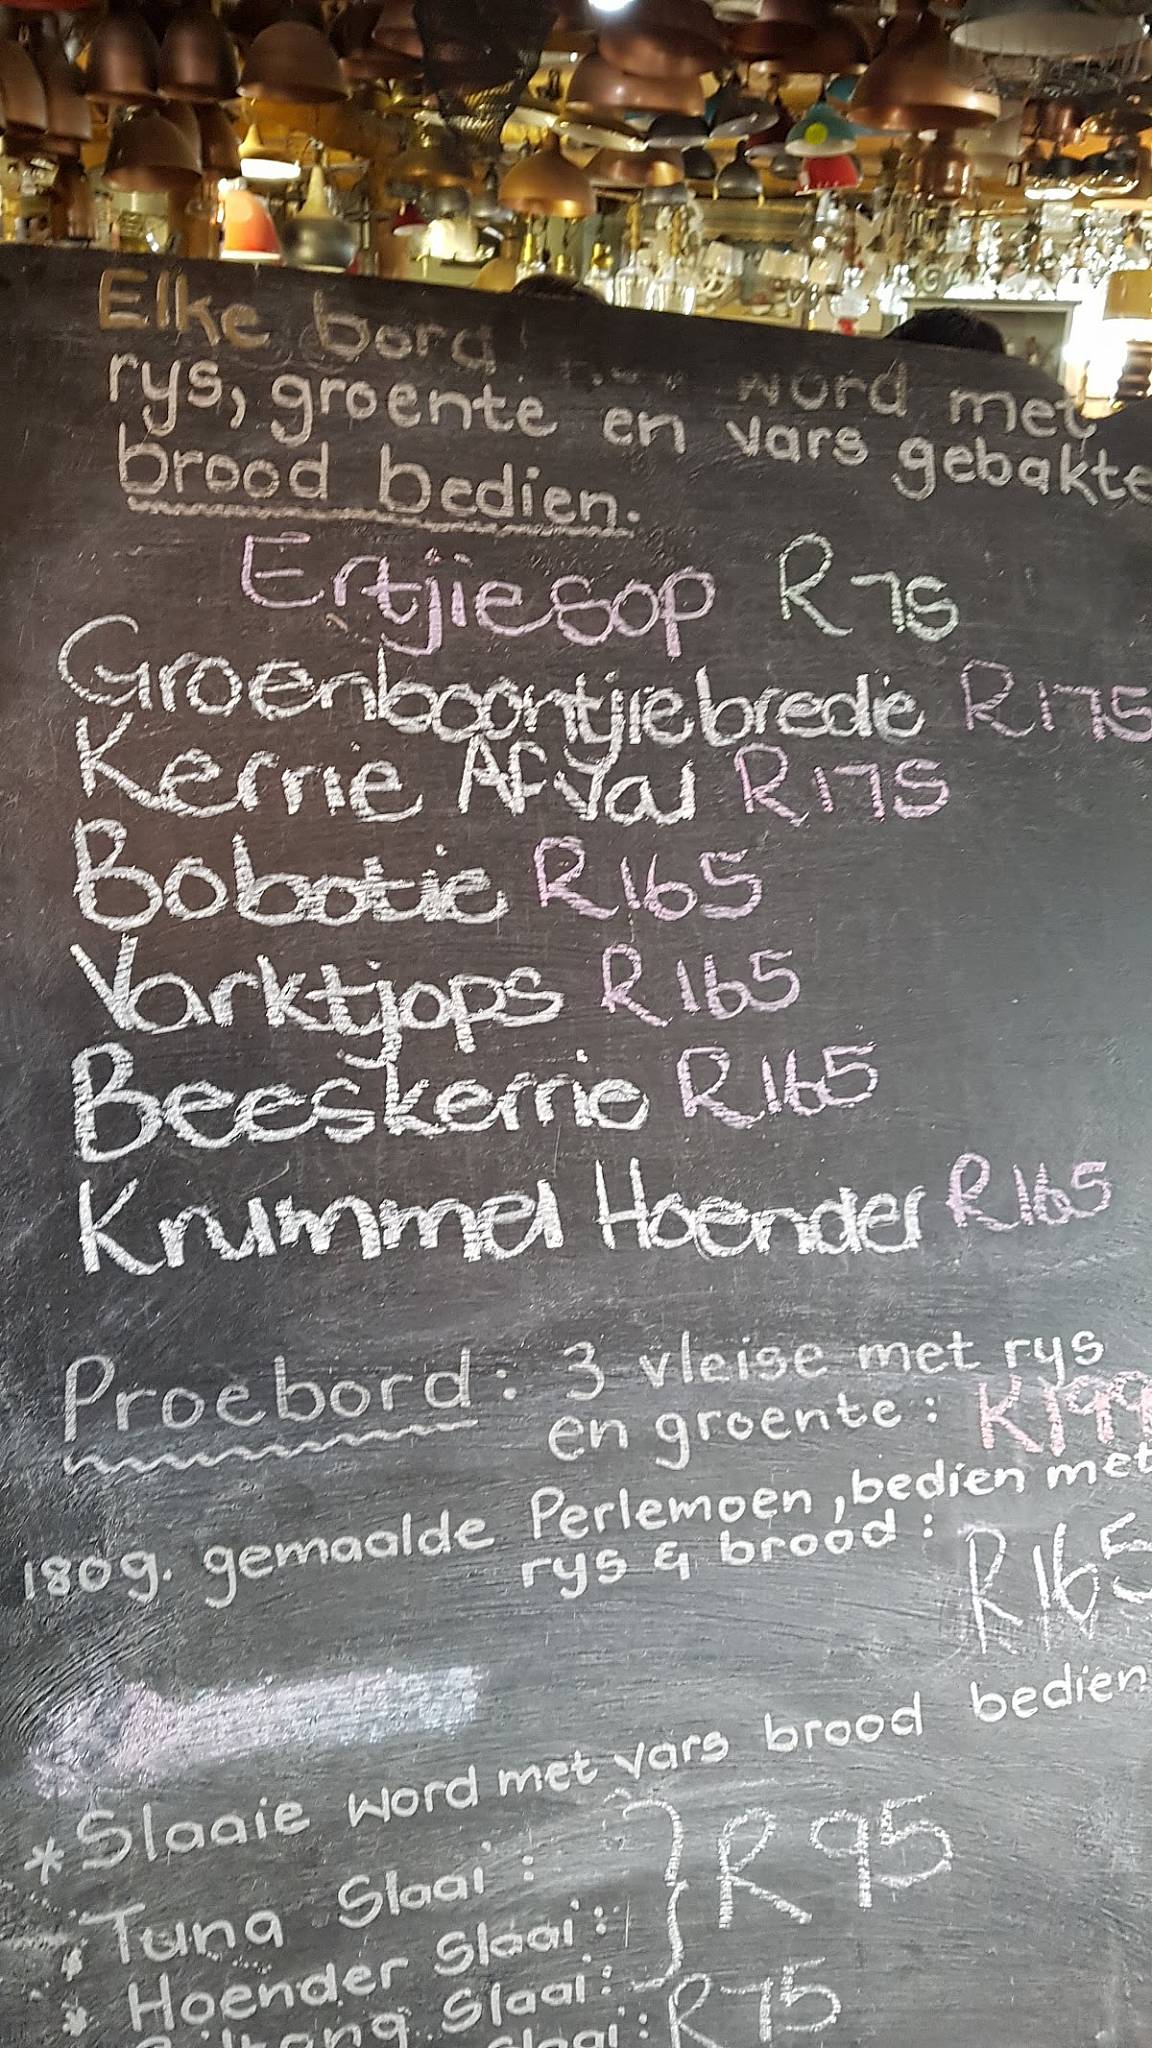 Elke bord word met
rys, groente en vars gebakte
brood bedien.
Ertjiesop R75
Groenboontjiebredie R175
Kerrie Afval R175
Bobotie R165
Varktjops R165
Beeskerrie R165
Krummel Hoender R165
Proebord: 3 vleise met rys
en groente: R199
180g. gemaalde Perlemoen, bedien met
rys & brood: R165
* Slaaie word met vars brood bedien
* Tuna Slaai: } R95
* Hoender Slaai:
Slaai:
Slaai: R75